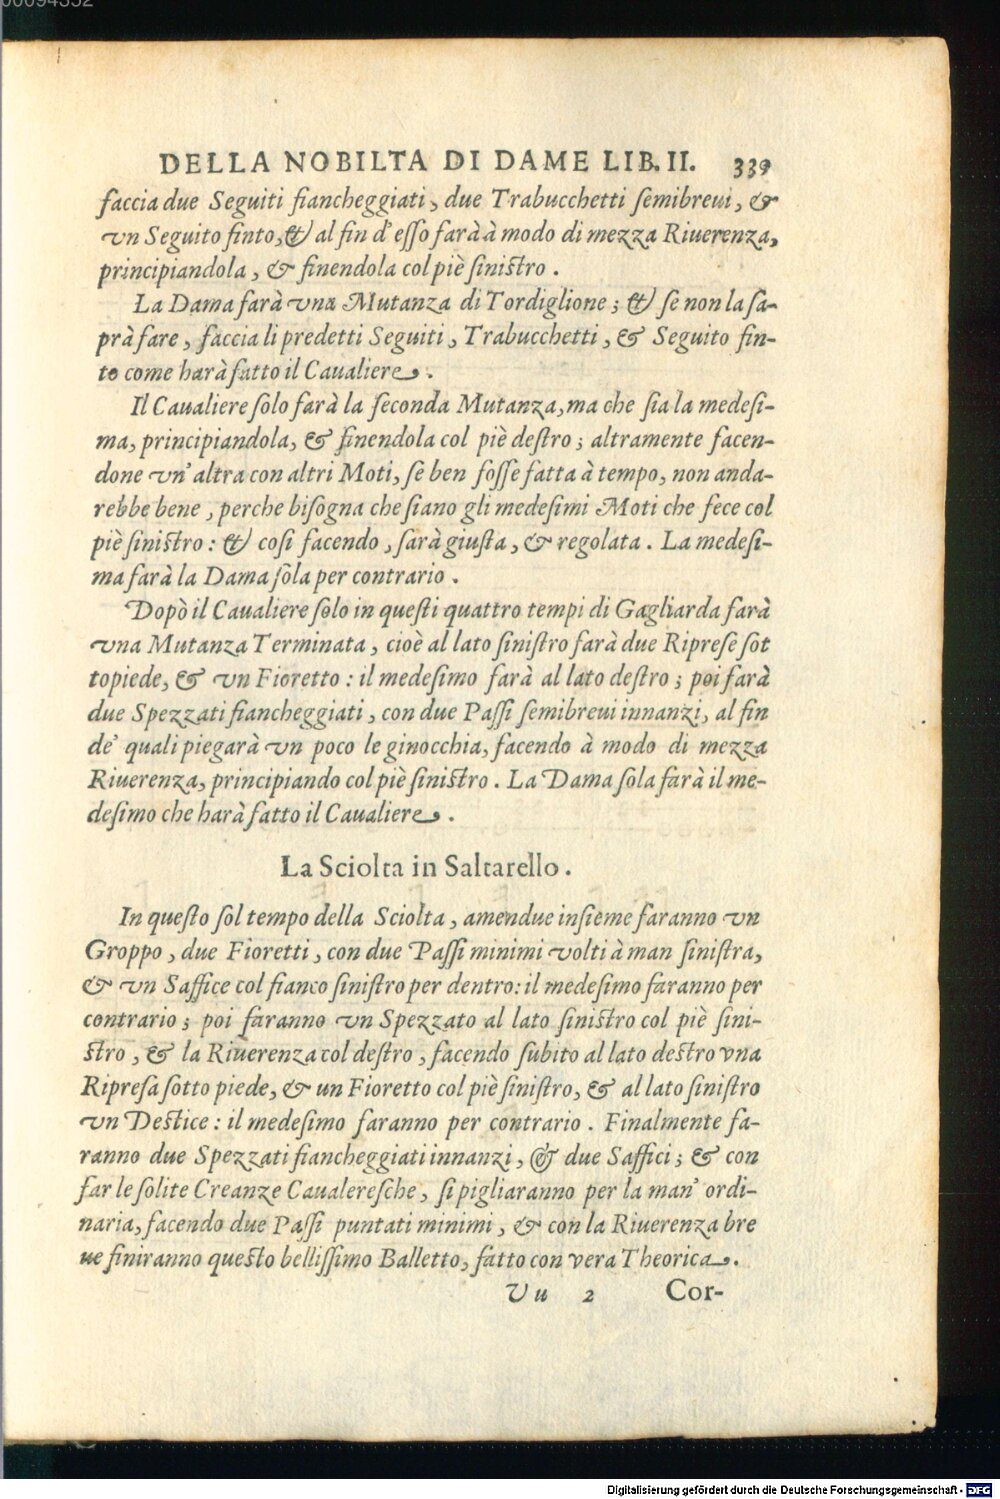 00094352
DELLA NOBILTA DI DAME LIB. II. 339
faccia due Seguiti fiancheggiati, due Trabucchetti ſemibreui, &
vn Seguito finto, & al fin d'eſſo farà à modo di mezza Riuerenza,
principiandola, & finendola col piè ſiniſtro.
La Dama farà vna Mutanza di Tordiglione; & ſe non la ſa-
prà fare, faccia li predetti Seguiti, Trabucchetti, & Seguito fin-
to come harà fatto il Caualiere.
Il Caualiere ſolo farà la ſeconda Mutanza, ma che ſia la medeſi-
ma, principiandola, & finendola col piè deſtro; altramente facen-
done vn' altra con altri Moti, ſe ben foſſe fatta à tempo, non anda-
rebbe bene, perche biſogna che ſiano gli medeſimi Moti che fece col
piè ſiniſtro: & coſi facendo, ſarà giuſta, & regolata. La medeſi-
ma farà la Dama ſola per contrario.
Dopò il Caualiere ſolo in queſti quattro tempi di Gagliarda farà
vna Mutanza Terminata, cioè al lato ſiniſtro farà due Ripreſe ſot
topiede, & vn Fioretto: il medeſimo farà al lato deſtro; poi farà
due Spezzati fiancheggiati, con due Paſſi ſemibreui innanzi, al fin
de' quali piegarà vn poco le ginocchia, facendo à modo di mezza
Riuerenza, principiando col piè ſiniſtro. La Dama ſola farà il me-
deſimo che harà fatto il Caualiere.
La Sciolta in Saltarello.
In queſto ſol tempo della Sciolta, amendue inſieme faranno vn
Groppo, due Fioretti, con due Paſſi minimi volti à man ſiniſtra,
& vn Saffice col fianco ſiniſtro per dentro: il medeſimo faranno per
contrario; poi faranno vn Spezzato al lato ſiniſtro col piè ſini-
ſtro, & la Riuerenza col deſtro, facendo ſubito al lato deſtro vna
Ripreſa ſotto piede, & un Fioretto col piè ſiniſtro, & al lato ſiniſtro
vn Deſtice: il medeſimo faranno per contrario. Finalmente fa-
ranno due Spezzati fiancheggiati innanzi, & due Saffici; & con
far le ſolite Creanze Caualereſche, ſi pigliaranno per la man' ordi-
naria, facendo due Paſſi puntati minimi, & con la Riuerenza bre
ue finiranno queſto belliſſimo Balletto, fatto con vera Theorica.
Vu 2 Cor-
Digitalisierung gefördert durch die Deutsche Forschungsgemeinschaft - DFG